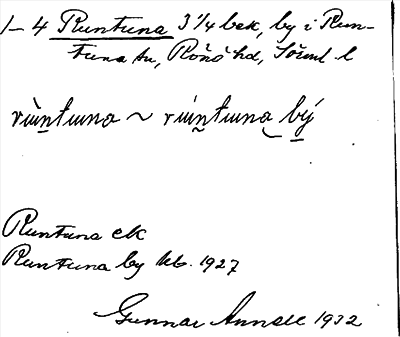 1–4 Runtuna 3 1/4 bek, by i Run-
tuna sn, Rönö hd, Söeml l
rùn̲tuna ~ rún̰tuna bý
Runtuna ek
Runtuna by kb. 1927
Gunnar Annell 1932